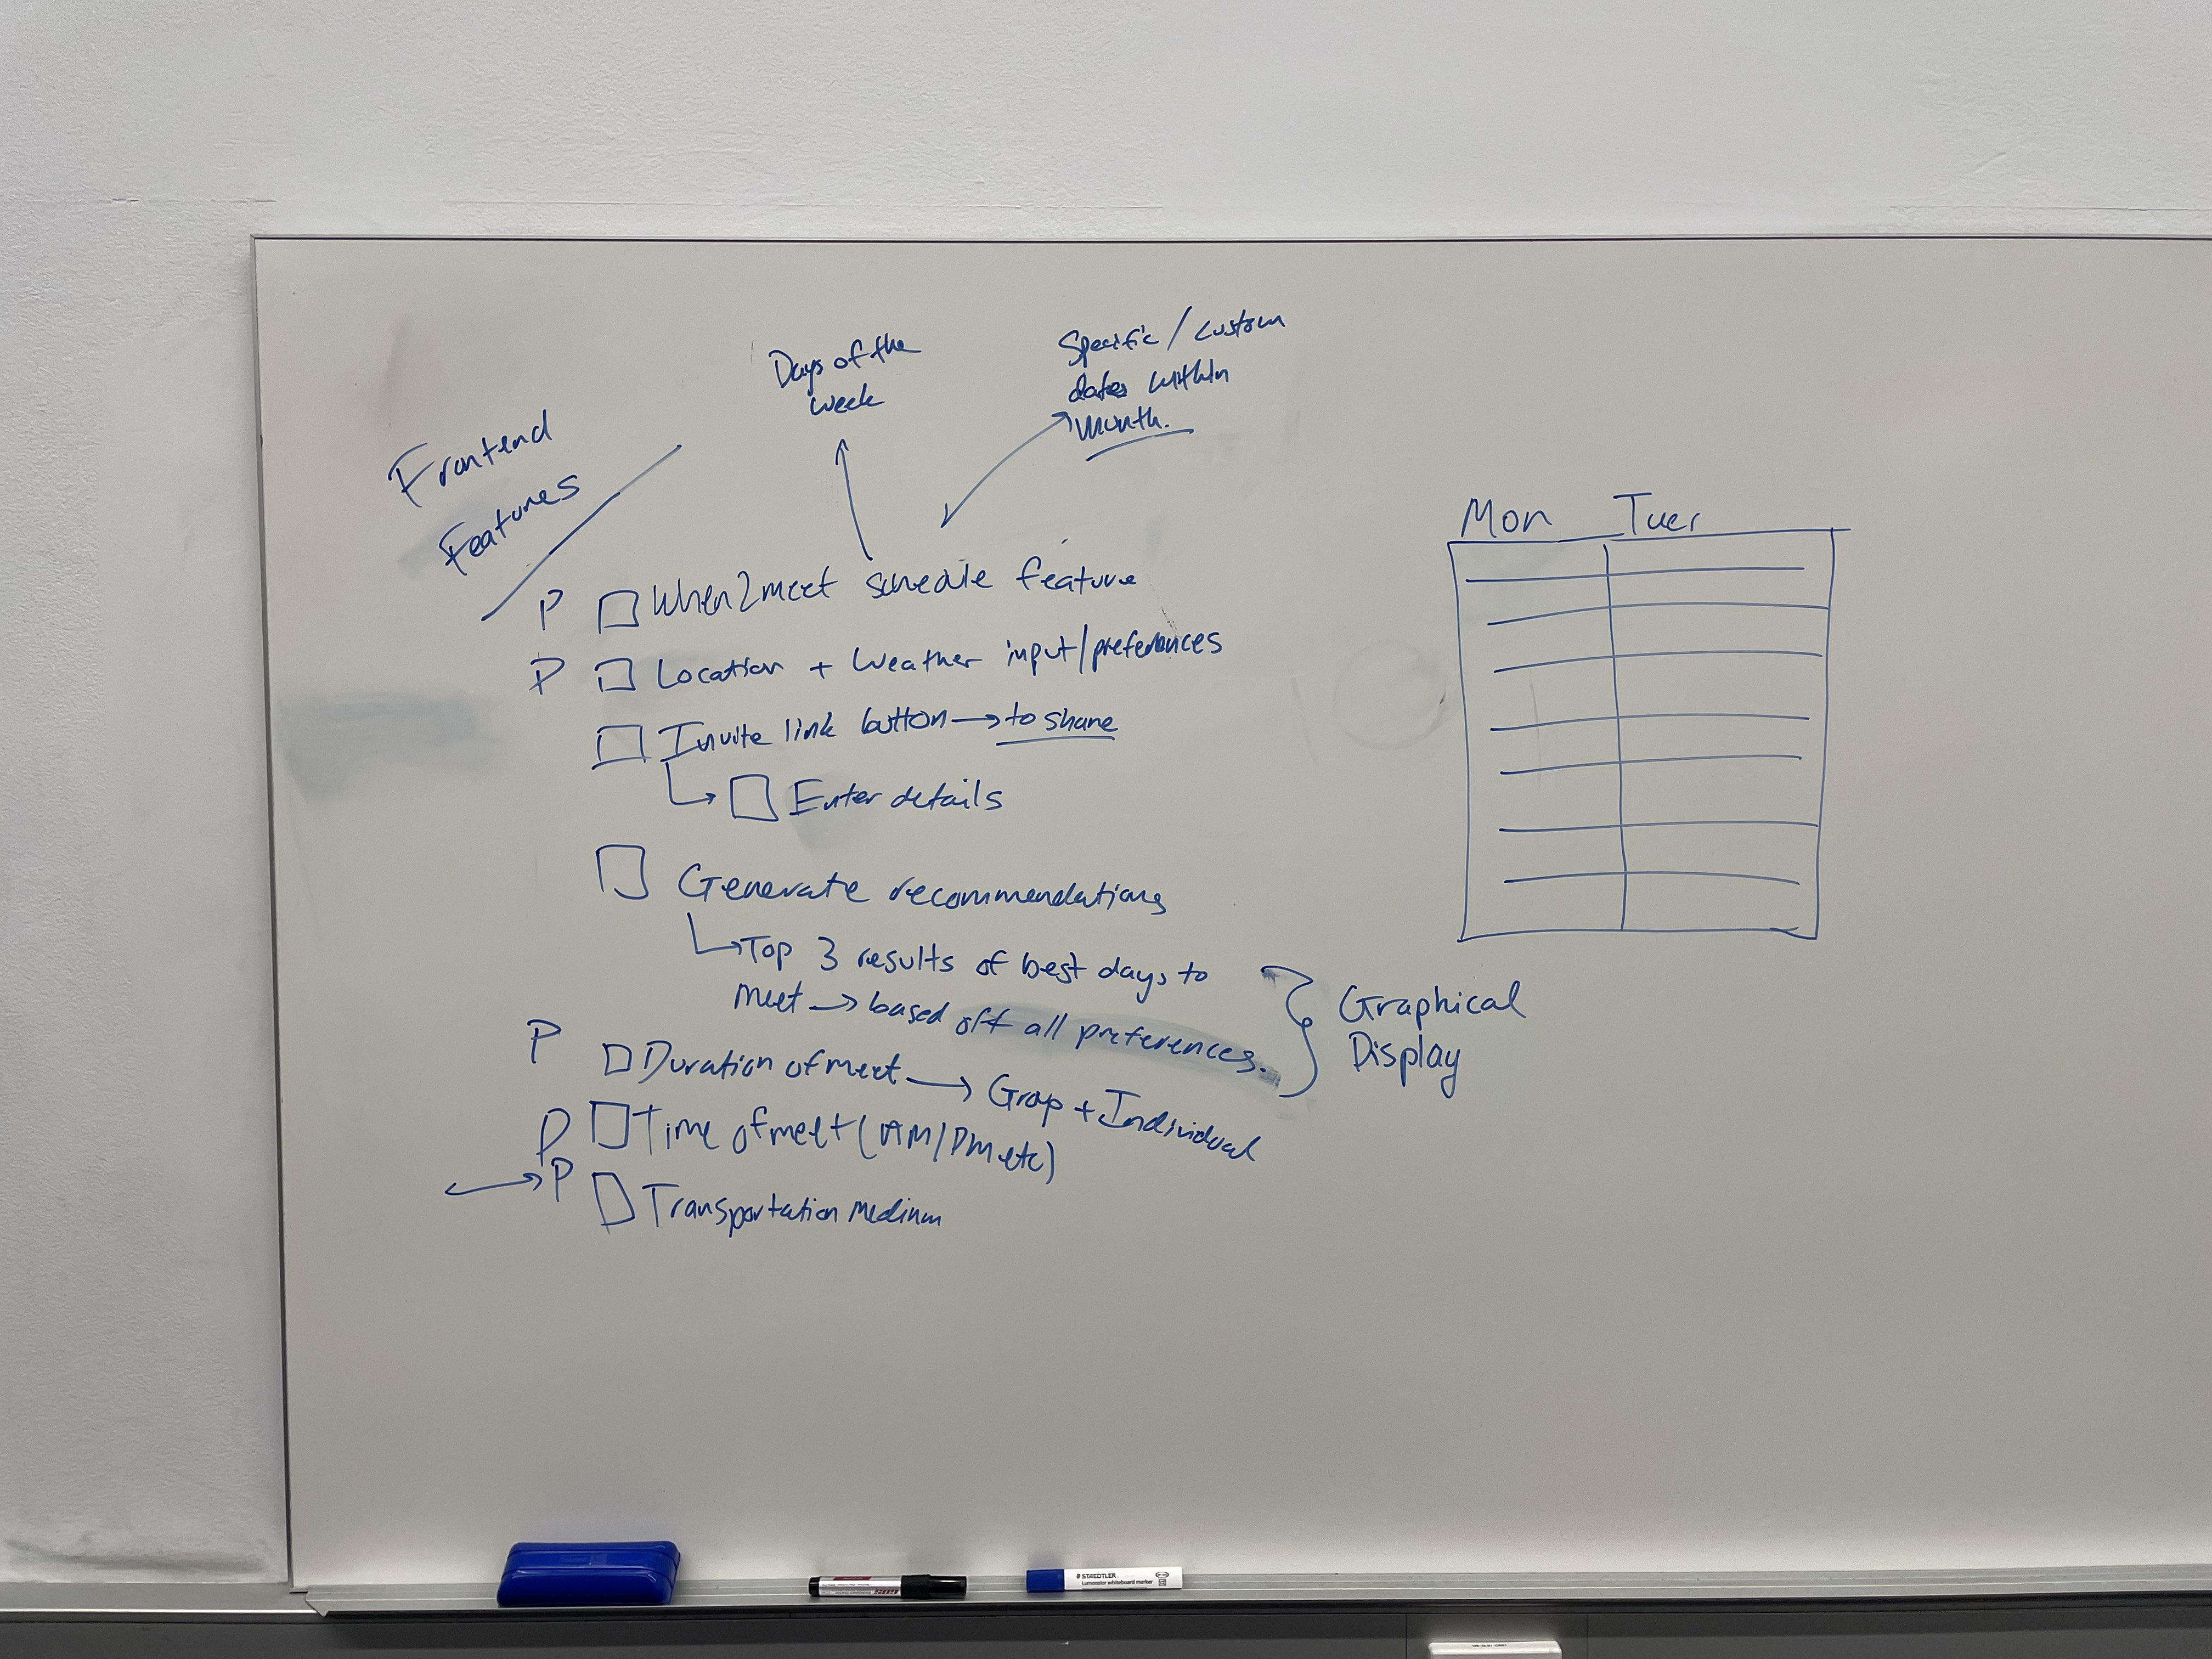 Days of the
week
Specific / custom
dates within
month.
Frontend
Features
P When2meet schedule feature
P Location + Weather input/preferences
Invite link button → to share
Enter details
Generate recommendations
Top 3 results of best days to
meet → based off all preferences.
P Duration of meet → Group + Individual
P Time of meet (AM/PM etc)
P Transportation medium
Graphical
Display
Mon Tues
STAEDTLER
Lumocolor whiteboard marker